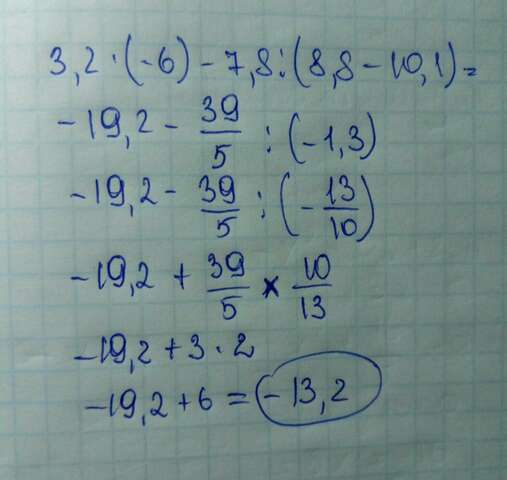 3,2 · (-6) - 7,8 : (8,8 - 10,1) =
-19,2 - 39/5 : (-1,3)
-19,2 - 39/5 : (-13/10)
-19,2 + 39/5 × 10/13
-19,2 + 3 · 2
-19,2 + 6 = -13,2